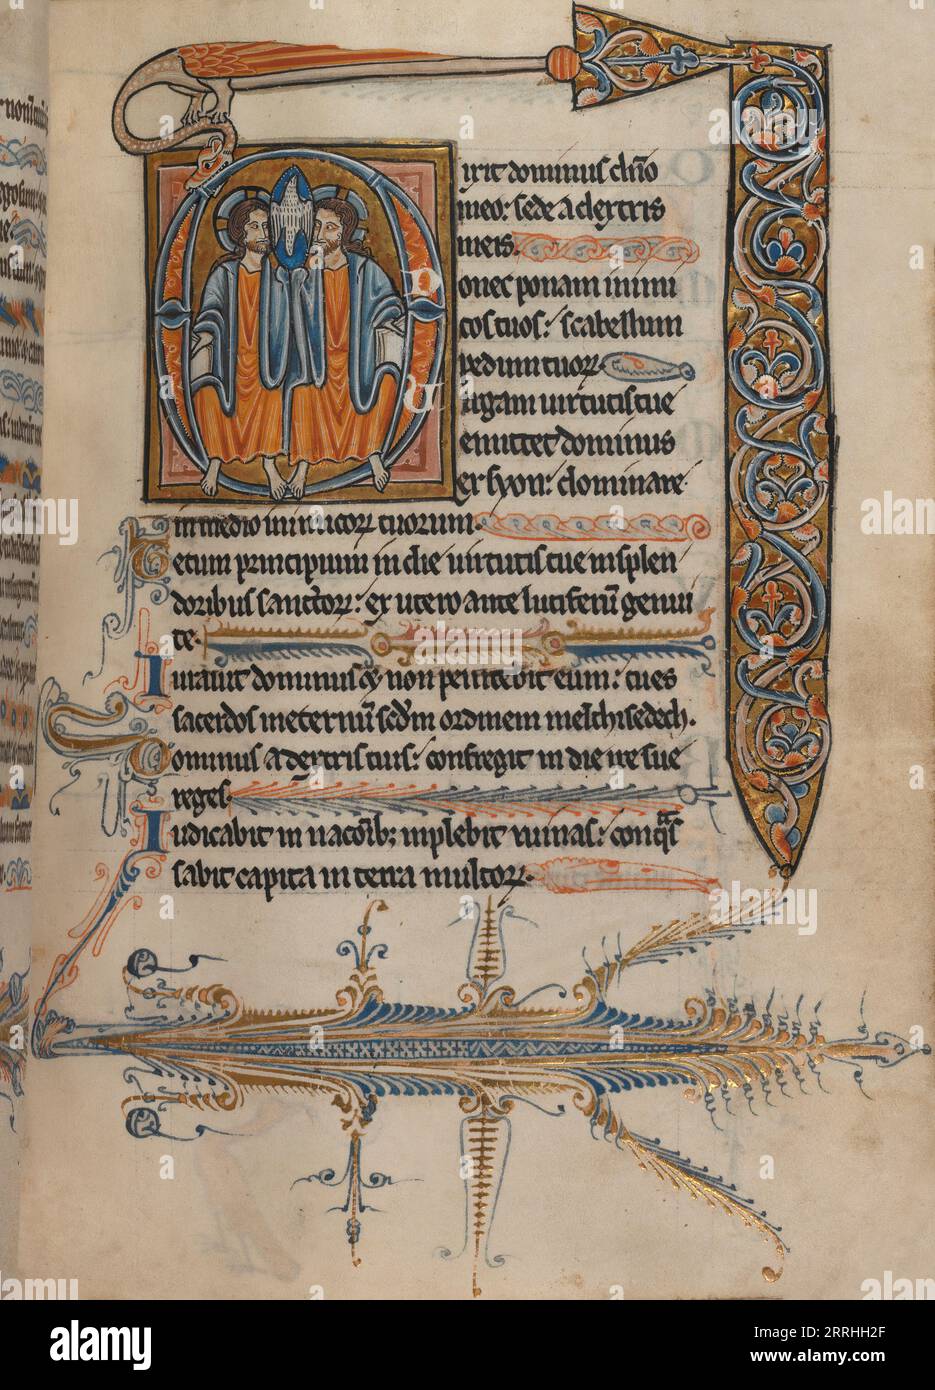 Dixit dominus dño
meo: sede a dextris
meis.
Donec ponam inimi
cos tuos: scabellum
pedum tuorꝝ.
Uirgam uirtutis tue
emittet dominus
ex syon: dominare
in medio inimicorꝝ tuorum.
Tecum principium in die uirtutis tue in splen
doribus sanctorꝝ: ex utero ante luciferū genui
te.
Iurauit dominus & non penitebit eum: tu es
sacerdos in eternū secdm ordinem melchisedech.
Dominus a dextris tuis: confregit in die ire sue
reges.
Iudicabit in nacōib; inplebit ruinas: conqas
sabit capita in terra multorꝝ.
alamy
Image ID: 2RRHH2F
www.alamy.com